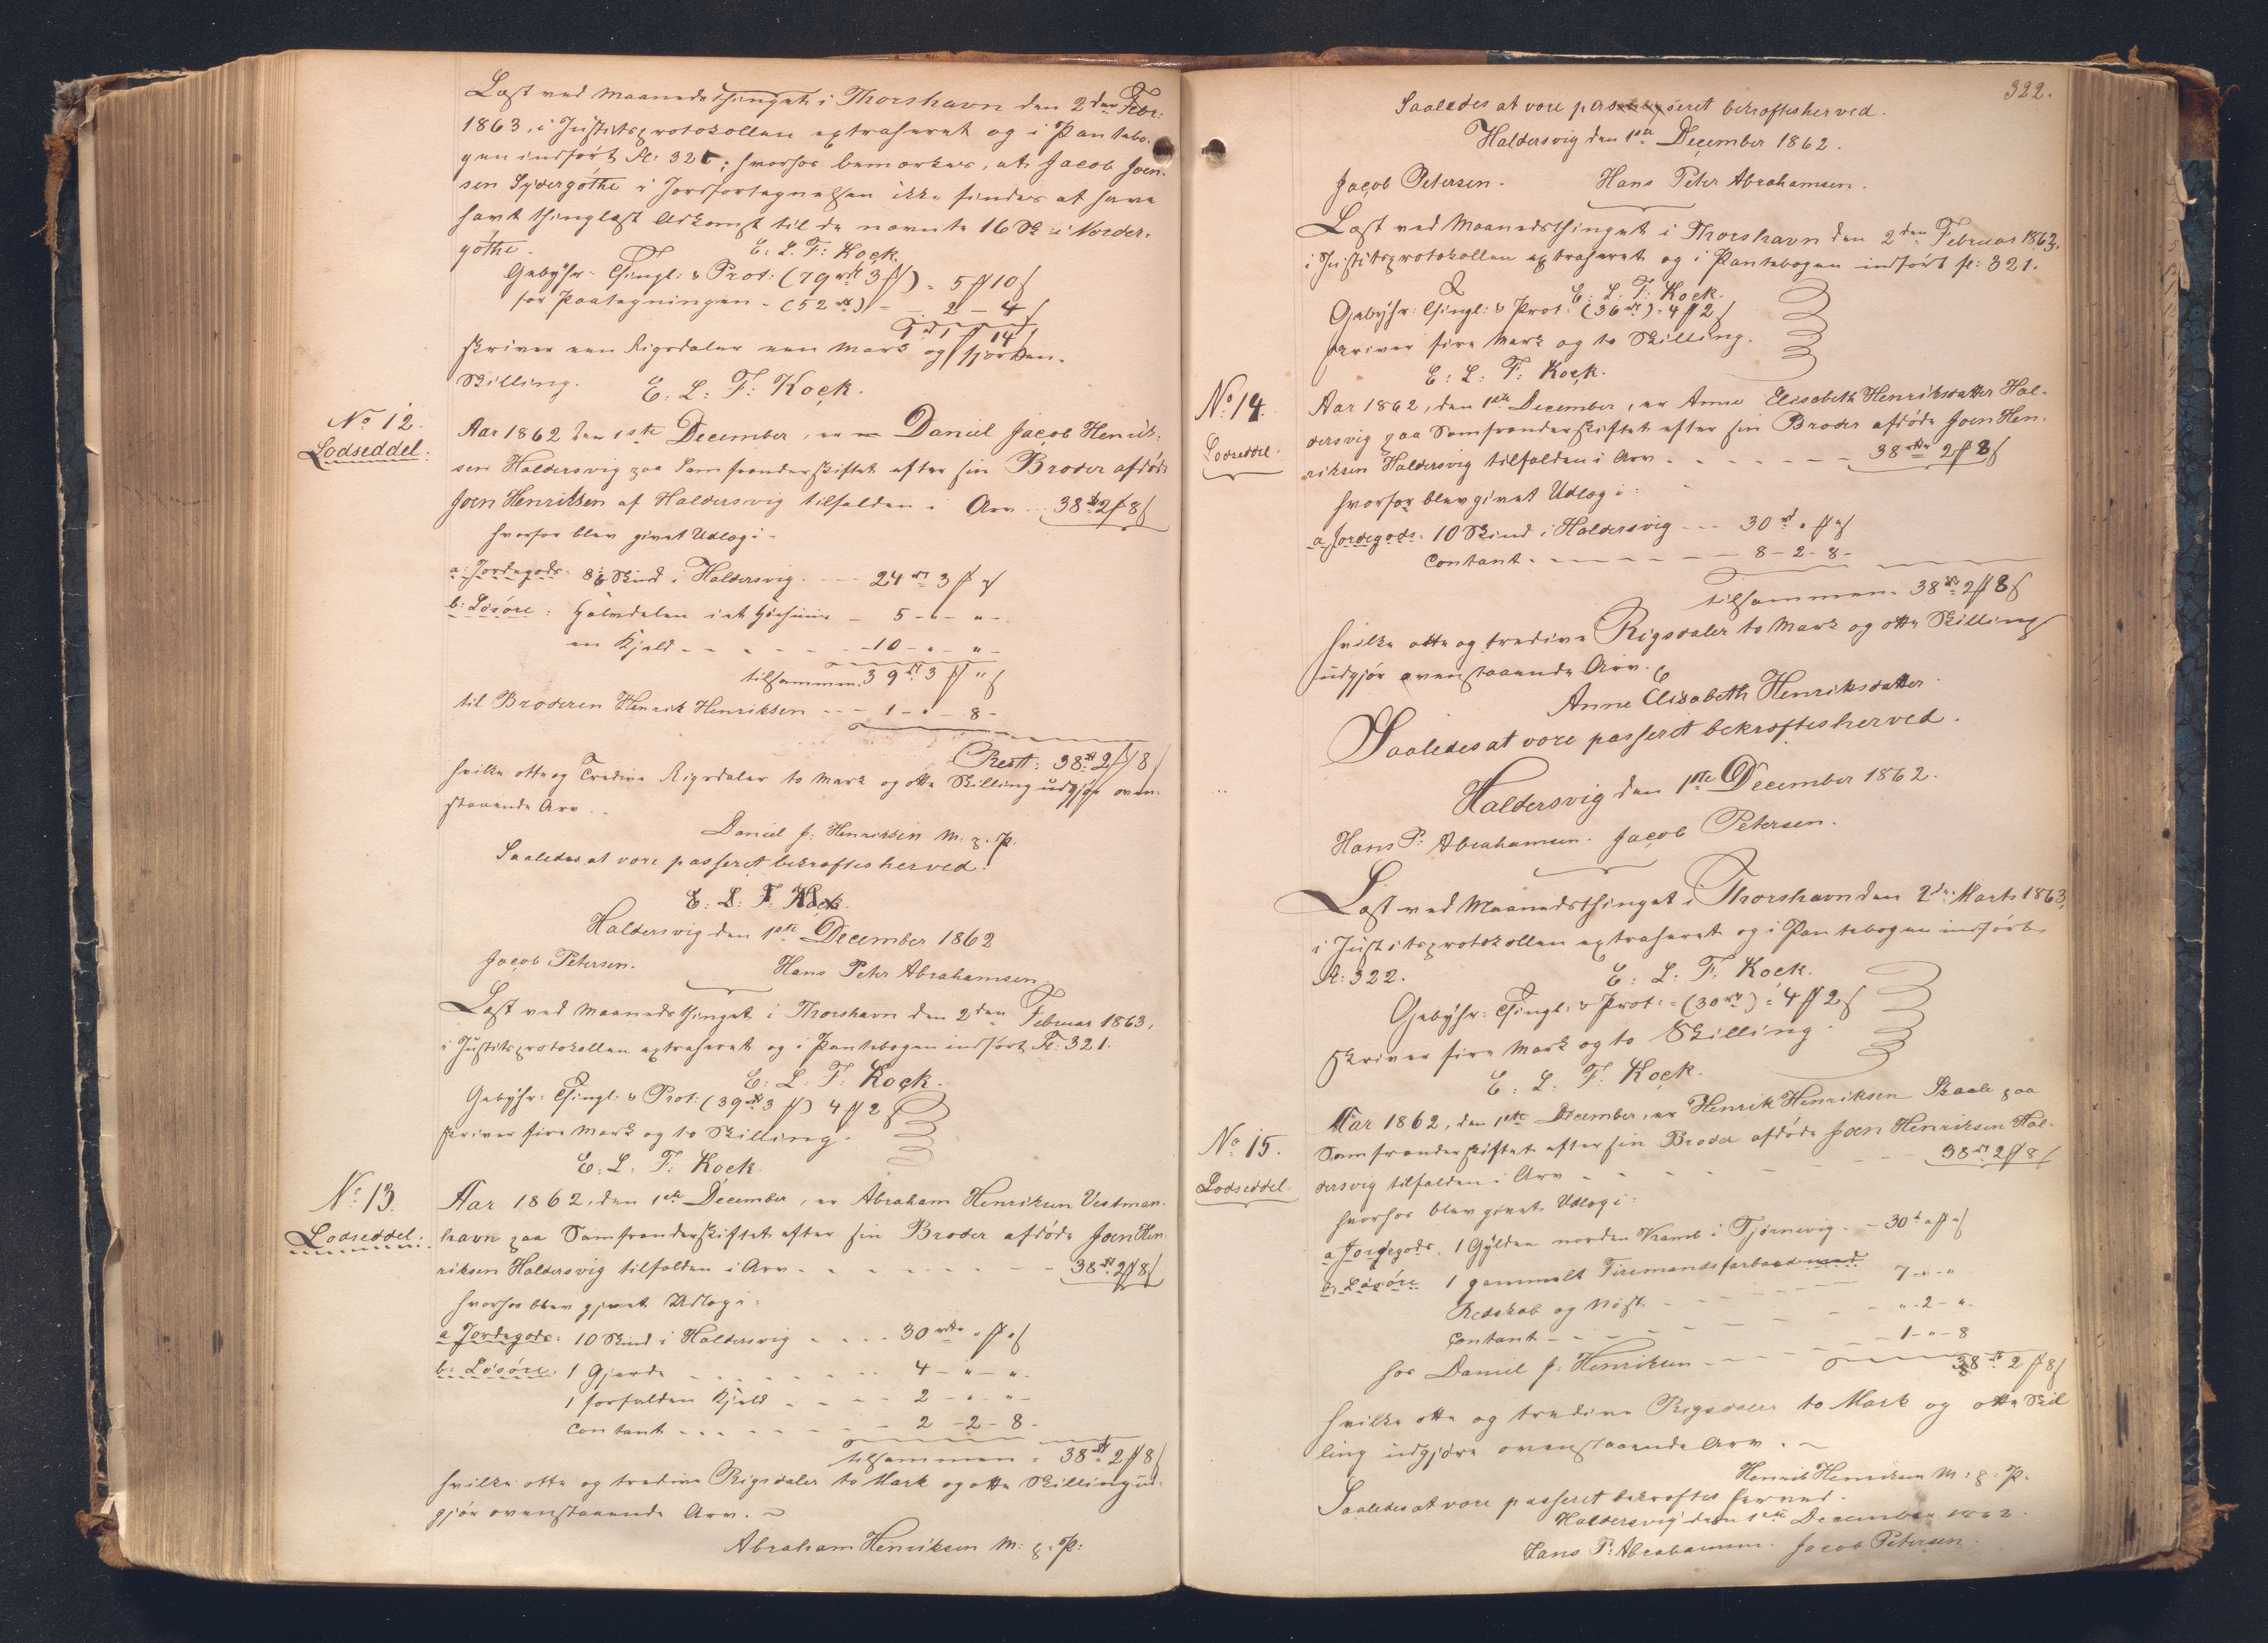 Læst ved Maanedsthinget i Thorshavn den 2den Febr:
1863, i Justitsprotokollen extraheret og i Pantebo-
gen indført fol: 321; hvorhos bemærkes, at Jacob Joen-
sen Sydergöthe i Jordfortegnelsen ikke findes at have
havt thinglæst Adkomst til de nævnte 16 Sk i Norder-
göthe.
E: L: F: Kock.
Gebyhr: Thingl: & Prot: (79 rd 3 ฿) = 5 ฿ 10 ß
for Paategningen - (52 rd) - 2 - 4 ß
1 rd 1 ฿ 14 ß
skriver een Rigsdaler een Mark og fjorten
Skilling.
E: L: F: Kock.
No 12.
Lodseddel:
Aar 1862 den 1ste December, er Daniel Jacob Henrik-
sen Haldersvig paa Samfrændeskiftet efter sin Broder afdöde
Joen Henriksen af Haldersvig tilfalden i Arv - 38 rd 2 ฿ 8 ß
hvorfor blev givet Udlæg i -
a: Jordegods: 8 1/6 Skind i Haldersvig - - - 24 rd 3 ฿ " ß
b: Løsöre: Halvdelen i et - 5 - " - " -
en Kjeld - - - - - 10 - " - " -
tilsammen. 39 rd 3 ฿ " ß
til Broderen Henrik Henriksen - - - 1 - " - 8 -
Rest: 38 rd 2 ฿ 8 ß
hvilke otte og tredive Rigsdaler to Mark og otte Skilling udgjör oven-
staaende Arv.
Daniel J: Henriksen M: g: P:
Saaledes at være passeret bekræftes herved.
E: L: F: Kock.
Haldersvig den 1ste December 1862
Jacob Petersen. Hans Peter Abrahamsen.
Læst ved Maanedsthinget i Thorshavn den 2den Februar 1863,
i Justitsprotokollen extraheret og i Pantebogen indført fl: 321.
E: L: F: Kock.
Gebyhr: Thingl: & Prot: (39 rd 3 ฿) 4 ฿ 2 ß
skriver fire Mark og to Skilling.
E: L: F: Kock.
No 13.
Lodseddel:
Aar 1862, den 1ste December, er Abraham Henriksen Vestman-
havn paa Samfrændeskiftet efter sin Broder afdöde Joen Hen-
riksen Haldersvig tilfalden i Arv - - - - - 38 rd 2 ฿ 8 ß
hvorfor blev givet Udlæg i:
a Jordegods: 10 Skind i Haldersvig - - - - 30 rd " ฿ " ß
b: Løsöre: 1 Gjerde - - - - - 4 - " - " -
1 forfalden Kjeld - - - - 2 - " - " -
Contant - - - - - - 2 - 2 - 8 -
tilsammen: 38 rd 2 ฿ 8 ß
hvilke otte og tredive Rigsdaler to Mark og otte Skilling ud-
gjör ovenstaaende Arv.
Abraham Henriksen M: g: P:
322.
Saaledes at være passeret bekræftes herved.
Haldersvig den 1ste December 1862.
Jacob Petersen. Hans Peter Abrahamsen.
Læst ved Maanedsthinget i Thorshavn den 2den Februar 1863,
i Justitsprotokollen extraheret og i Pantebogen indført fl: 321.
E: L: F: Kock.
Gebyhr: Thingl: & Prot: (36 rd) = 4 ฿ 2 ß
skriver fire Mark og to Skilling.
E: L: F: Kock.
No 14.
Lodseddel.
Aar 1862, den 1ste December, er Anne Elisabeth Henriksdatter Hal-
dersvig paa Samfrændeskiftet efter sin Broder afdöde Joen Hen-
riksen Haldersvig tilfalden i Arv - - - - - 38 rd 2 ฿ 8 ß
hvorfor blev givet Udlæg i:
a Jordegods: 10 Skind i Haldersvig - - - 30 rd " ฿ " ß
Contant - - - - - - 8 - 2 - 8 -
tilsammen = 38 rd 2 ฿ 8 ß
hvilke otte og tredive Rigsdaler to Mark og otte Skilling
udgjör ovenstaaende Arv.
Anne Elisabeth Henriksdatter
Saaledes at være passeret bekræftes herved.
Haldersvig den 1ste December 1862.
Hans P: Abrahamsen. Jacob Petersen.
Læst ved Maanedsthinget i Thorshavn den 2den Marts 1863,
i Justitsprotokollen extraheret og i Pantebogen indført
fl: 322.
E: L: F: Kock.
Gebyhr: Thingl: & Prot: = (30 rd) = 4 ฿ 2 ß
skriver fire Mark og to Skilling.
E: L: F: Kock.
No 15.
Lodseddel.
Aar 1862, den 1ste December, er Henrik Henriksen Skaale paa
Samfrændeskiftet efter sin Broder afdöde Joen Henriksen Hal-
dersvig tilfalden i Arv - - - - - 38 rd 2 ฿ 8 ß
hvorfor blev givet Udlæg i:
a Jordegods. 1 Gylden norden Kamb i Tjörnevig - - 30 rd " ฿ " ß
b. Løsöre 1 gammelt Firemandsfarbaad med
Redskab og Nöst - - - - 7 - " - "
Contant - - - - - - " - 2 - "
hos Daniel J: Henriksen - - - - 1 - " - 8
38 rd 2 ฿ 8 ß
hvilke otte og tredive Rigsdaler to Mark og otte Skil
ling udgjöre ovenstaaende Arv.
Henrik Henriksen M: g: P.
Saaledes at være passeret bekræftes herved.
Haldersvig den 1ste December 1862.
Hans P: Abrahamsen. Jacob Petersen.